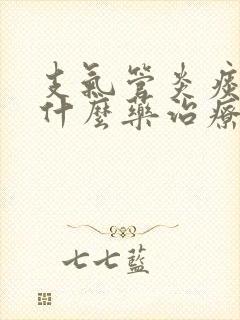 支氣管炎痰
什麼藥治療
七七藍